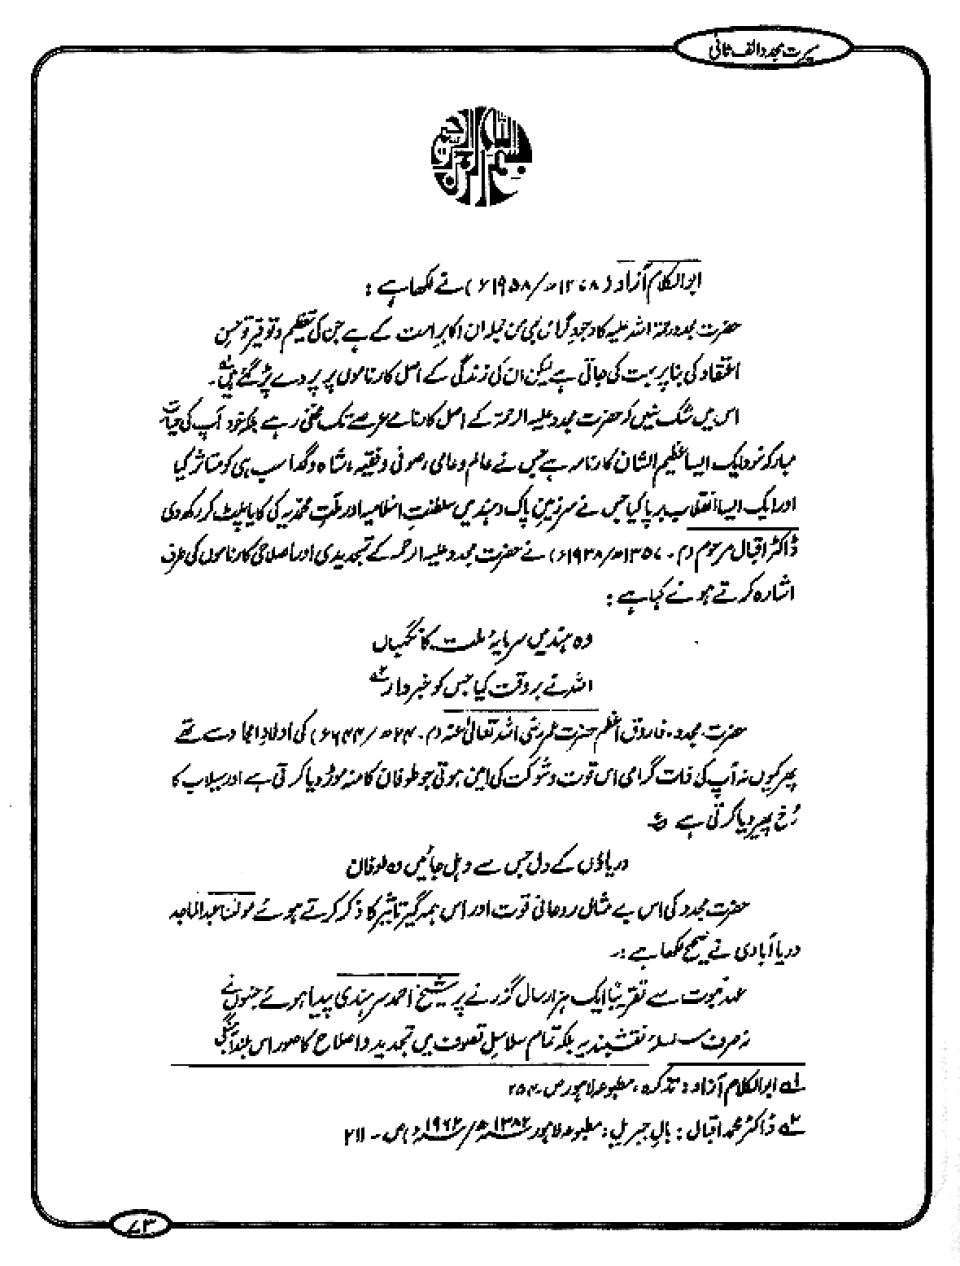 سیرت مجدد الف ثانی
بسم اللہ الرحمن الرحیم
ابوالکلام آزاد (۱۳۷۸ھ/۱۹۵۸ء) نے لکھا ہے :
حضرت مجدد رحمۃ اللہ علیہ کا وجود گرامی بھی من جملہ ان اکابر امت کے ہے جن کی تعظیم و توقیر تو حسن
اعتقاد کی بنا پر بہت کی جاتی ہے لیکن ان کی زندگی کے اصل کارناموں پر پردے پڑ گئے ہیں لہ۔
اس میں شک نہیں کہ حضرت مجدد علیہ الرحمۃ کے اصل کارنامے عرصے تک مخفی رہے بلکہ خود آپ کی حیات
مبارکہ خود ایک ایسا عظیم الشان کارنامہ ہے جس نے عالم و عامی، صوفی و فقیہ، شاہ و گدا سب ہی کو متاثر کیا
اور ایک ایسا انقلاب برپا کیا جس نے سرزمین پاک و ہند میں سلطنتِ اسلامیہ اور ملتِ محمدیہ کی کایا پلٹ کر رکھ دی
ڈاکٹر اقبال مرحوم (م۔ ۱۳۵۷ھ/۱۹۳۸ء) نے حضرت مجدد علیہ الرحمہ کے تجدیدی اور اصلاحی کارناموں کی طرف
اشارہ کرتے ہوئے کہا ہے :
وہ ہند میں سرمایۂ ملت کا نگہباں
اللہ نے بروقت کیا جس کو خبردار ۲ہ
حضرت مجدد، فاروق اعظم حضرت عمر رضی اللہ تعالیٰ عنہ (م۔ ۲۴ھ/۶۴۴ء) کی اولاد امجاد سے تھے
پھر کیوں نہ آپ کی ذات گرامی اس قوت و شوکت کی امین ہوتی جو طوفان کا منہ موڑ دیا کرتی ہے اور سیلاب کا
رُخ پھیر دیا کرتی ہے ع
دریاؤں کے دل جس سے دہل جائیں وہ طوفان
حضرت مجدد کی اس بے مثال روحانی قوت اور اس ہمہ گیر تاثیر کا ذکر کرتے ہوئے مولٰنا عبدالماجد
دریا آبادی نے صحیح لکھا ہے :۔
عہد نبوت سے تقریباً ایک ہزار سال گزرنے پر شیخ احمد سرہندی پیدا ہوئے جنہوں نے
نہ صرف سلسلۂ نقشبندیہ بلکہ تمام سلاسلِ تصوف میں تجدید و اصلاح کا صور اس بلند آہنگی
۱ہ ابوالکلام آزاد : تذکرہ، مطبوعہ لاہور ص۔ ۲۵۴
۲ہ ڈاکٹر محمد اقبال : بالِ جبریل، مطبوعہ لاہور ۱۳۸۲ھ/۱۹۶۲ء، ص۔ ۲۱۱
۷۳